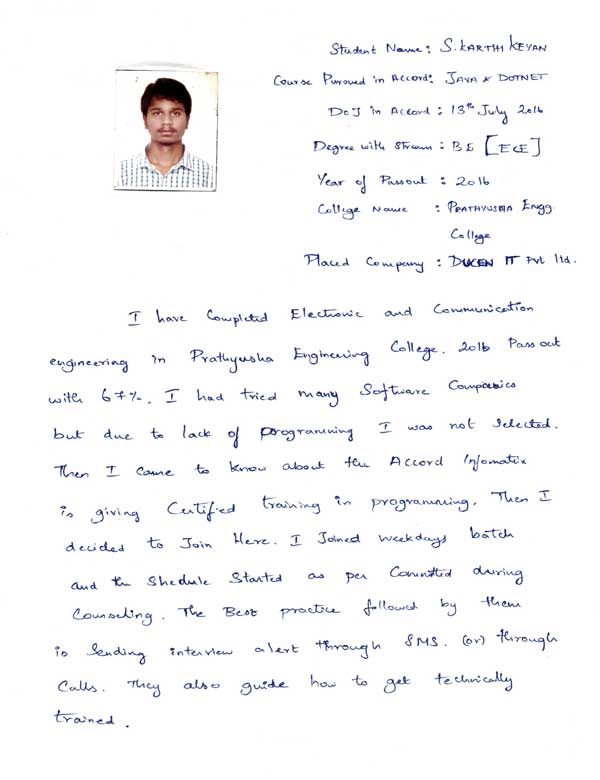 Student Name : S. KARTHI KEYAN
Course Pursued in Accord : JAVA & DOTNET
DOJ in Accord : 13th July 2016
Degree with Stream : BE [ECE]
Year of Passout : 2016
College Name : PRATHYUSHA Engg.
College
Placed Company : DUCEN IT Pvt ltd.
I have Completed Electronic and Communication
engineering in Prathyusha Engineering College. 2016 Pass out
with 67%. I had tried many Software Companies
but due to lack of programming I was not Selected.
Then I came to know about the Accord Infomatix
is giving Certified training in programming. Then I
decided to Join Here. I Joined weekdays batch
and the Shedule Started as per Committed during
Counseling. The Best practice followed by them
is Sending interview alert through SMS. (or) through
Calls. They also guide how to get technically
trained.